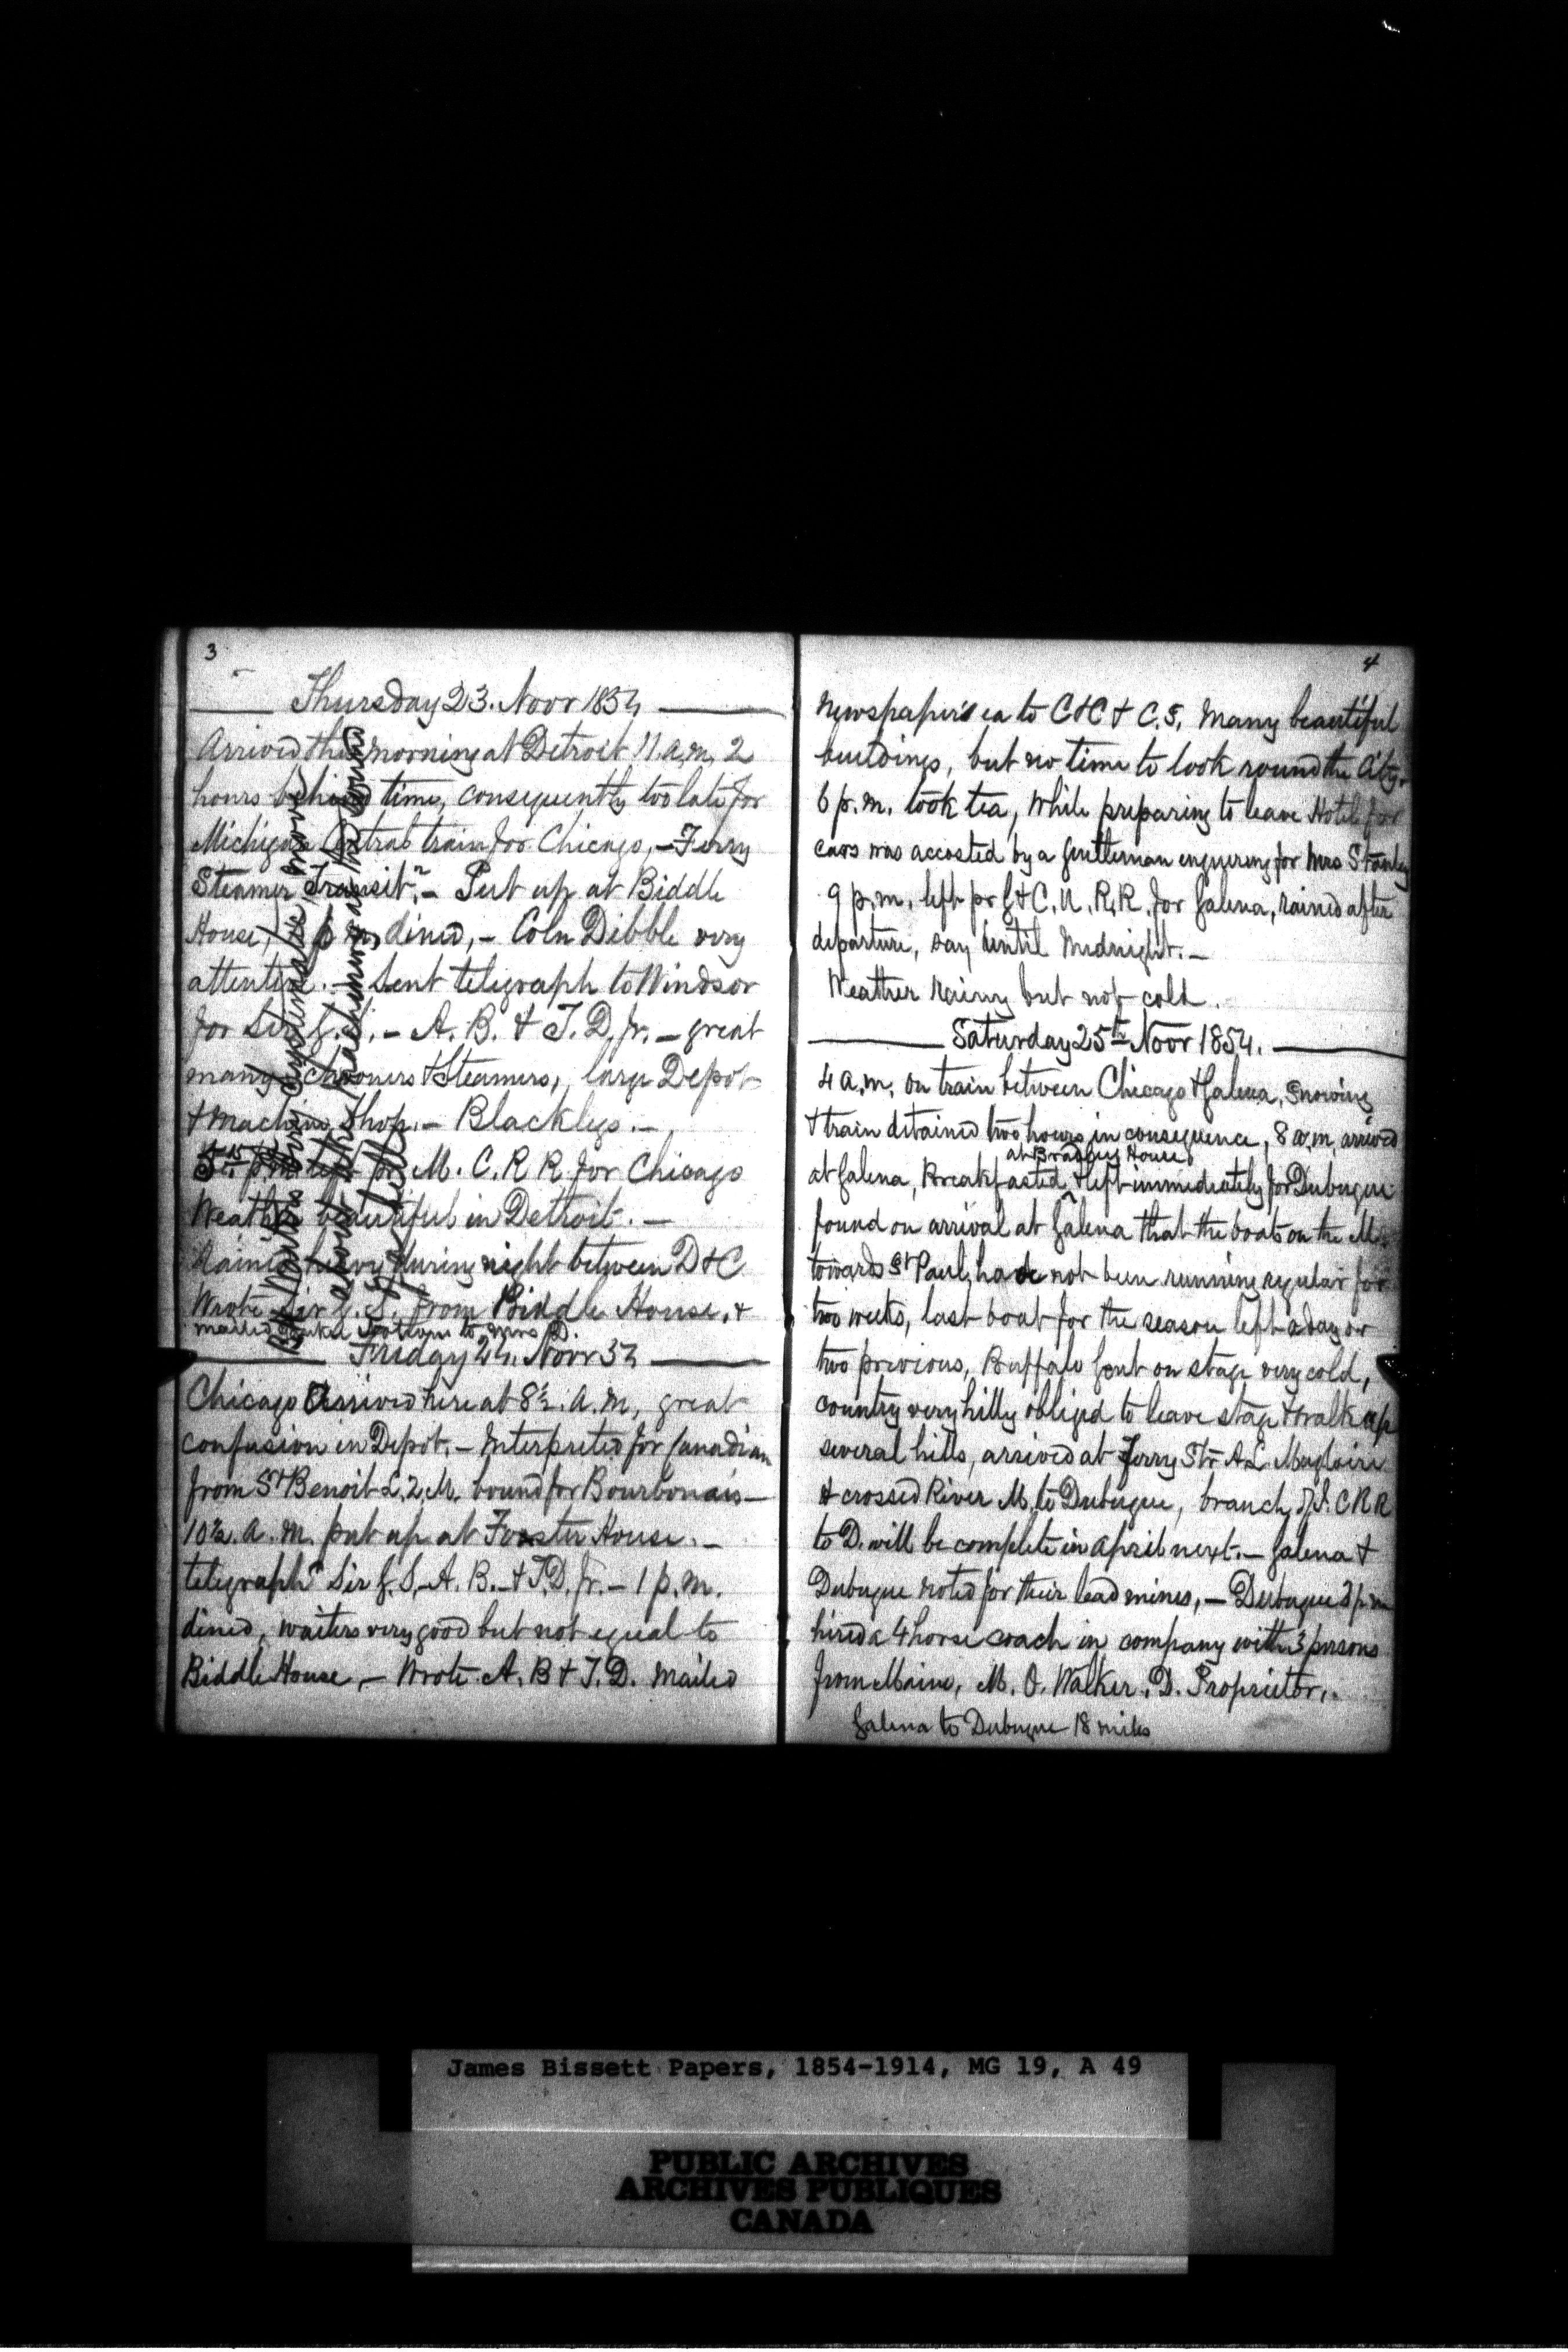 3
Thursday 23. Novr 1854
Arrived this morning at Detroit 11. a.m, 2
hours behind time, consequently too late for
Michigan Central train for Chicago, - Ferry
Steamer "Transit". - Put up at Biddle
House, p m, dined, - Coln Dibble very
attentive. - Sent telegraph to Windsor
for Sir G. S. - A. B. & T. D. Jr. - great
many Schooners & Steamers, large Depôt
& Machine Shop. - Blacklegs. -
left pr M. C. R R for Chicago
Weather beautiful in Detroit. -
Rained heavy during night between D & C
Wrote Sir G. S. from Biddle House, &
mailed to Mrs D.
Friday 24. Novr 54
Chicago Arrived here at 8½. a. m, great
confusion in Depôt. - Interpreted for Canadian
from St Benoit L. 2. M. bound for Bourbonais -
10½. a. m. put up at Foster House. -
telegraphd Sir G. S, - A. B. - & T. D. Jr. - 1 p. m.
dined, waiters very good but not equal to
Biddle House, - Wrote A. B & T. D. mailed
4
Newspapers ea to C & C & C. S, Many beautiful
buildings, but no time to look round the City.
6 p. m. took tea, while preparing to leave Hotel for
cars was accosted by a gentleman enquering for Mrs Stanley
9 p. m. left pr G & C. U. R. R. for Galena, rained after
departure, say until Midnight. -
Weather Rainy but not cold.
Saturday 25th Novr 1854.
4 a.m. on train between Chicago & Galena, Snowing
& train detained two hours in consequence, 8 a.m. arrived
at Bradley House
at Galena, Breakfasted & left immediately for Dubuque
found on arrival at Galena that the boats on the Mi
towards St Paul, have not been running regular for
two weeks, last boat for the season left a day or
two previous, Buffalo on stage very cold,
country very hilly obliged to leave stage & walk up
several hills, arrived at Ferry Str A L
& crossed River M. to Dubuque, branch of I. C R R
to D. will be complete in April next. - Galena &
Dubuque noted for their lead mines, - Dubuque p m
hired a 4 horse coach in company with 3 persons
from Maine, M. O. Walker. D. Proprietor,.
Galena to Dubuque 18 miles
James Bissett Papers, 1854-1914, MG 19, A 49
PUBLIC ARCHIVES
ARCHIVES PUBLIQUES
CANADA